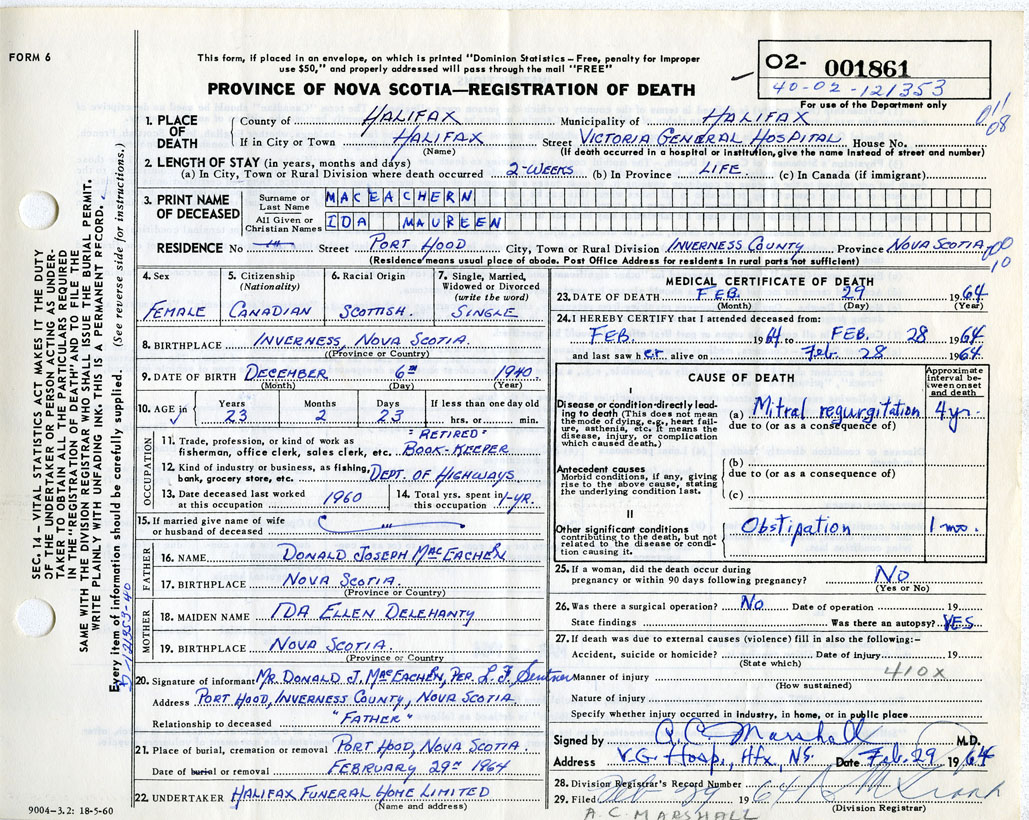 FORM 6
This form, if placed in an envelope, on which is printed "Dominion Statistics - Free, penalty for improper
use $50," and properly addressed will pass through the mail "FREE"
PROVINCE OF NOVA SCOTIA—REGISTRATION OF DEATH
O2- 001861
40-02-121353
For use of the Department only
1. PLACE OF DEATH
County of HALIFAX Municipality of HALIFAX
If in City or Town HALIFAX Street VICTORIA GENERAL HOSPITAL House No.
(Name) (If death occurred in a hospital or institution, give the name instead of street and number)
2. LENGTH OF STAY (in years, months and days)
(a) In City, Town or Rural Division where death occurred 2-WEEKS (b) In Province LIFE (c) In Canada (if immigrant)
3. PRINT NAME OF DECEASED
Surname or Last Name MACEACHERN
All Given or Christian Names IDA MAUREEN
RESIDENCE No Street PORT HOOD City, Town or Rural Division INVERNESS COUNTY Province NOVA SCOTIA
(Residence means usual place of abode. Post Office Address for residents in rural parts not sufficient)
4. Sex FEMALE
5. Citizenship (Nationality) CANADIAN
6. Racial Origin SCOTTISH
7. Single, Married, Widowed or Divorced (write the word) SINGLE
8. BIRTHPLACE INVERNESS, NOVA SCOTIA.
(Province or Country)
9. DATE OF BIRTH DECEMBER 6TH 1940.
(Month) (Day) (Year)
10. AGE in Years 23 Months 2 Days 23 If less than one day old hrs. or min.
OCCUPATION
11. Trade, profession, or kind of work as fisherman, office clerk, sales clerk, etc. "RETIRED" BOOK-KEEPER
12. Kind of industry or business, as fishing, bank, grocery store, etc. DEPT. OF HIGHWAYS
13. Date deceased last worked at this occupation 1960
14. Total yrs. spent in this occupation 1-YR.
15. If married give name of wife or husband of deceased
FATHER
16. NAME DONALD JOSEPH MACEACHEN
17. BIRTHPLACE NOVA SCOTIA.
(Province or Country)
MOTHER
18. MAIDEN NAME IDA ELLEN DELEHANTY
19. BIRTHPLACE NOVA SCOTIA.
(Province or Country
20. Signature of informant MR. DONALD J. MACEACHEN, PER. L. F. Sentner
Address PORT HOOD, INVERNESS COUNTY, NOVA SCOTIA
Relationship to deceased "FATHER"
21. Place of burial, cremation or removal PORT HOOD, NOVA SCOTIA.
Date of burial or removal FEBRUARY 29TH 1964
22. UNDERTAKER HALIFAX FUNERAL HOME LIMITED
(Name and address)
9004-3.2: 18-5-60
MEDICAL CERTIFICATE OF DEATH
23. DATE OF DEATH FEB. 29 1964
(Month) (Day) (Year)
24. I HEREBY CERTIFY that I attended deceased from:
FEB. 1964 to FEB. 28 1964
and last saw her alive on Feb. 28 1964.
CAUSE OF DEATH
Approximate interval between onset and death
I
Disease or condition directly leading to death (This does not mean the mode of dying, e.g., heart failure, asthenia, etc. It means the disease, injury, or complication which caused death.)
(a) Mitral regurgitation 4 yr.
due to (or as a consequence of)
Antecedent causes
Morbid conditions, if any, giving rise to the above cause, stating the underlying condition last.
(b)
due to (or as a consequence of)
(c)
II
Other significant conditions contributing to the death, but not related to the disease or condition causing it.
Obstipation 1 mo.
25. If a woman, did the death occur during pregnancy or within 90 days following pregnancy? NO
(Yes or No)
26. Was there a surgical operation? NO. Date of operation 19
State findings Was there an autopsy? YES
27. If death was due to external causes (violence) fill in also the following:-
Accident, suicide or homicide? Date of injury 19
(State which)
Manner of injury 410X
(How sustained)
Nature of injury
Specify whether injury occurred in industry, in home, or in public place
Signed by A C Marshall M.D.
Address V.G. Hosp., Hfx, NS. Date Feb. 29 1964
28. Division Registrar's Record Number
29. Filed Feb 29 1964
(Division Registrar)
A. C. MARSHALL
SEC. 14 – VITAL STATISTICS ACT MAKES IT THE DUTY
OF THE UNDERTAKER OR PERSON ACTING AS UNDER-
TAKER TO OBTAIN ALL THE PARTICULARS REQUIRED
IN THE "REGISTRATION OF DEATH" AND TO FILE THE
SAME WITH THE DIVISION REGISTRAR WHO SHALL ISSUE THE BURIAL PERMIT.
WRITE PLAINLY WITH UNFADING INK. THIS IS A PERMANENT RECORD.
Every item of information should be carefully supplied. (See reverse side for instructions.)